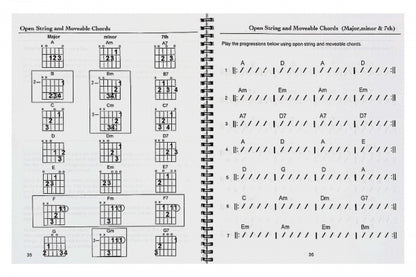 Open String and Moveable Chords
Major minor 7th
A Am A7
B Bm B7
C Cm C7
D Dm D7
E Em E7
F Fm F7
G Gm G7
35
Open String and Moveable Chords (Major,minor & 7th)
Play the progressions below using open string and moveable chords.
1 A D A D
2 Am Em Am Em
3 A7 D7 A7 D7
4 A D A E
5 D G D A
6 C Am Dm G7
7 Em Am Em Bm
36